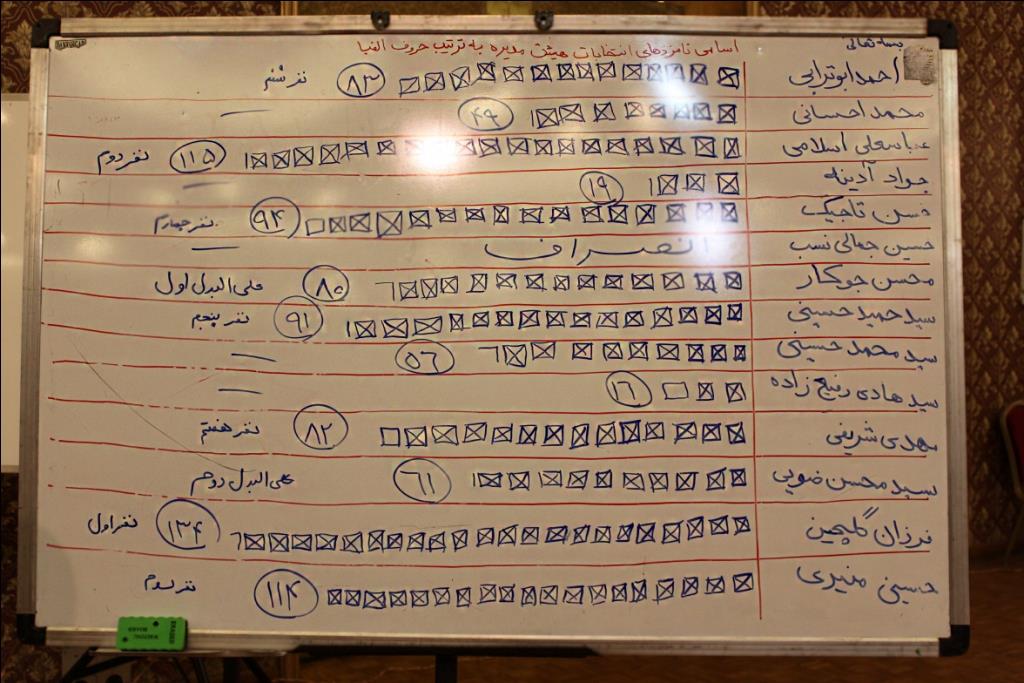 بسمه تعالی
اسامی نامزدهای انتخابات هیئت مدیره به ترتیب حروف الفبا
احمد ابوترابی ۸۳ نفر ششم
محمد احسانی ۴۹ —
عباسعلی اسلامی ۱۱۵ نفر دوم
جواد آدینه ۱۹ —
حسن تاجیک ۹۴ نفر چهارم
حسین جمالی نسب انصراف —
محسن جوکار ۸۰ علی البدل اول
سید حمید حسینی ۹۱ نفر پنجم
سید محمد حسینی ۵۶ —
سید هادی رفیع زاده ۱۶ —
مهدی شریفی ۸۲ نفر هفتم
سید محسن ضویی ۶۱ علی البدل دوم
فرزان گلچین ۱۳۴ نفر اول
حسین منیری ۱۱۴ نفر سوم